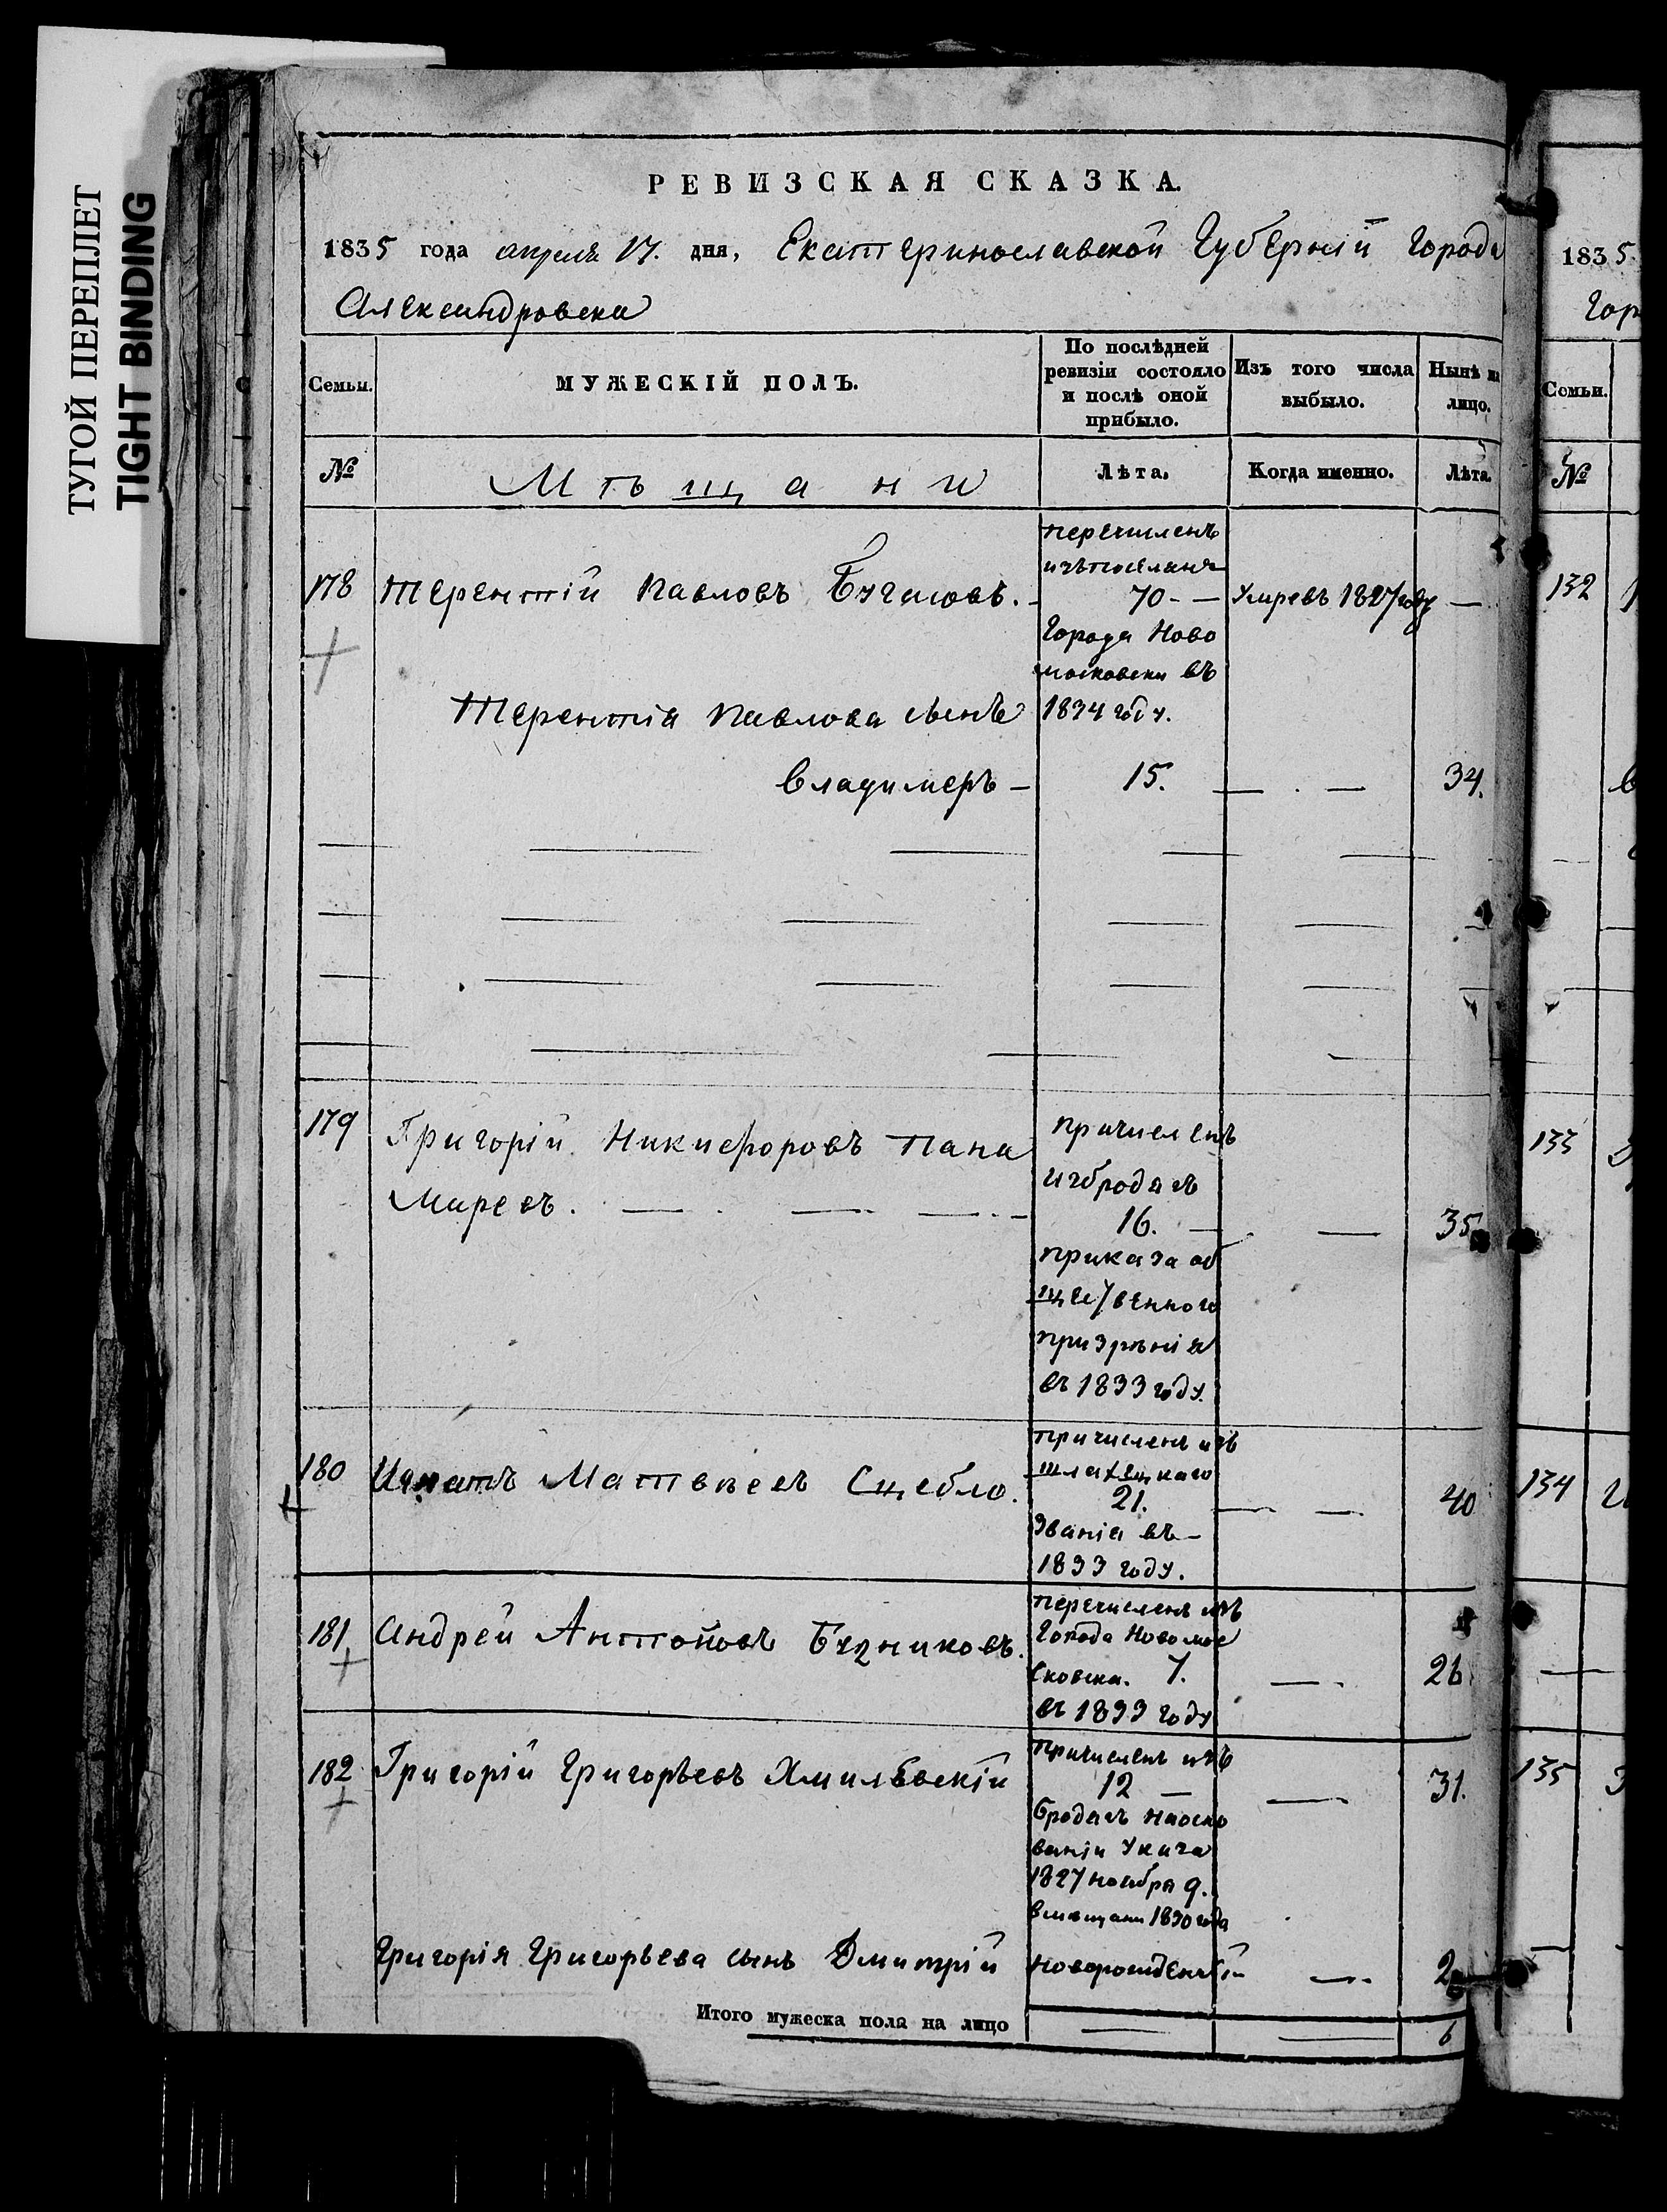 ТУГОЙ ПЕРЕПЛЕТ
TIGHT BINDING
РЕВИЗСКАЯ СКАЗКА.
1835 года апреля 17. дня, Екатеринославской Губерніи города
Александровска
Семьи.
МУЖЕСКІЙ ПОЛЪ.
По послѣдней ревизіи состояло и послѣ оной прибыло.
Изъ того числа выбыло.
Нынѣ на лицо.
№
Мѣщани
Лѣта.
Когда именно.
Лѣта.
перечисленъ
178 Терентій Павловъ 70 - — Умревъ 1827 году —
города Ново
московска въ
Терентія Павлова сынъ 1834 году.
Владимеръ — 15. — . — 34.
179 Григорій Никифоровъ Пана
причисленъ
избродягъ
миревъ. — . — . — . — 16. — . — 35
приказа об
щественного
призрѣнія
въ 1833 году.
причисленъ изъ
180 Игнатъ Матвѣевъ Сщебло.
шляхецкаго
21. — — 40
званія въ —
1833 году.
перечисленъ изъ
181 Андрей Антоновъ
города Новомос
сковска. 7. — . 26
въ 1833 году
причисленъ изъ
182 Григорій Григорьевъ Хмилъвскій 12 — — 31.
бродягъ наосно
ваніи Указа
1827 ноября 9.
вмещани 1830 года
Григорія Григорьева сынъ Дмитрій новорожденный — . 2
Итого мужеска пола на лицо — — 6
1835
Гор
Семьи.
№
132
133
134
135